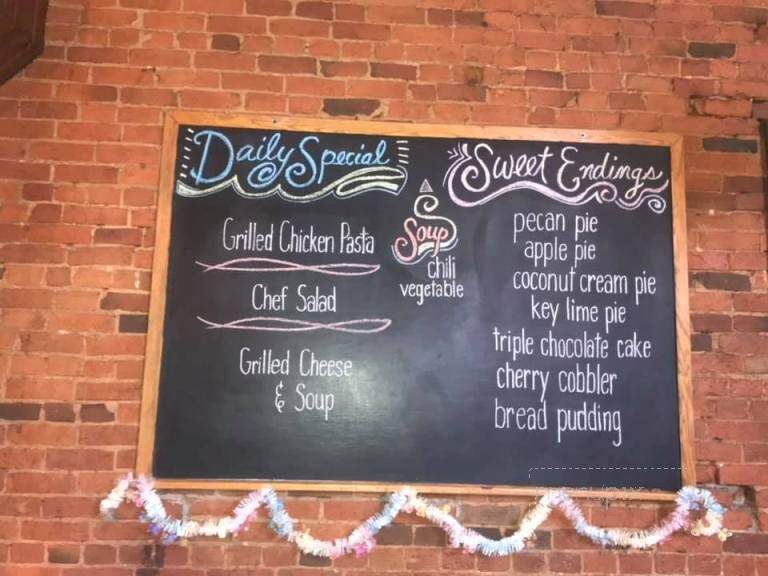 Daily Special
Grilled Chicken Pasta
Chef Salad
Grilled Cheese
& Soup
Soup
chili
vegetable
Sweet Endings
pecan pie
apple pie
coconut cream pie
key lime pie
triple chocolate cake
cherry cobbler
bread pudding